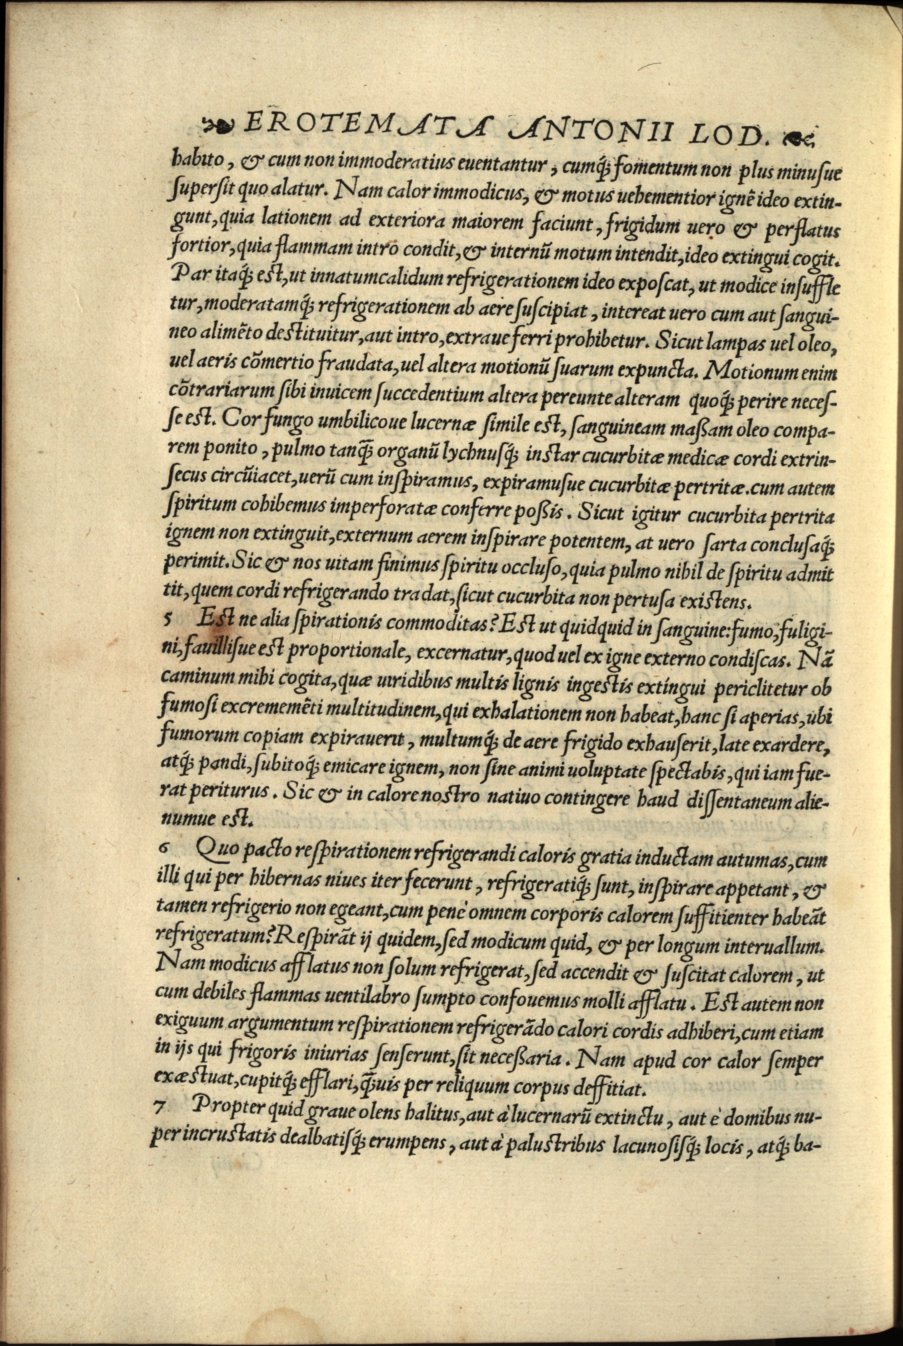 ❧ EROTEMATA ANTONII LOD. ☙
habito, & cum non immoderatius euentantur, cumq́; fomentum non plus minusue
supersit quo alatur. Nam calor immodicus, & motus uehementior ignẽ ideo extin-
gunt, quia lationem ad exteriora maiorem faciunt, frigidum uero & perflatus
fortior, quia flammam intro condit, & internũ motum intendit, ideo extingui cogit.
Par itaq́; est, ut innatumcalidum refrigerationem ideo exposcat, ut modice insuffle
tur, moderatamq́; refrigerationem ab aere suscipiat, intereat uero cum aut sangui-
neo alimẽto destituitur, aut intro, extraue ferri prohibetur. Sicut lampas uel oleo,
uel aeris cõmertio fraudata, uel altera motionũ suarum expuncta. Motionum enim
cõtrariarum sibi inuicem succedentium altera pereunte alteram quoq́; perire neces-
se est. Cor fungo umbilicoue lucernæ simile est, sanguineam maßam oleo compa-
rem ponito, pulmo tanq̃ organũ lychnusq́; instar cucurbitæ medicæ cordi extrin-
secus circũiacet, uerũ cum inspiramus, expiramusue cucurbitæ pertritæ. cum autem
spiritum cohibemus imperforatæ conferre poßis. Sicut igitur cucurbita pertrita
ignem non extinguit, externum aerem inspirare potentem, at uero sarta conclusaq́;
perimit. Sic & nos uitam finimus spiritu occluso, quia pulmo nihil de spiritu admit
tit, quem cordi refrigerando tradat, sicut cucurbita non pertusa existens.
5 Est ne alia spirationis commoditas? Est ut quidquid in sanguine: fumo, fuligi-
ni, fauillisue est proportionale, excernatur, quod uel ex igne externo condiscas. Nã
caminum mihi cogita, quæ uiridibus multis lignis ingestis extingui periclitetur ob
fumosi excrememẽti multitudinem, qui exhalationem non habeat, hanc si aperias, ubi
fumorum copiam expirauerit, multumq́; de aere frigido exhauserit, late exardere,
atq́; pandi, subitoq́; emicare ignem, non sine animi uoluptate spectabis, qui iam fue-
rat periturus. Sic & in calore nostro natiuo contingere haud dissentaneum alie-
numue est.
6 Quo pacto respirationem refrigerandi caloris gratia inductam autumas, cum
illi qui per hibernas niues iter fecerunt, refrigeratiq́; sunt, inspirare appetant, &
tamen refrigerio non egeant, cum penè omnem corporis calorem suffitienter habeãt
refrigeratum? Respirãt ij quidem, sed modicum quid, & per longum interuallum.
Nam modicus afflatus non solum refrigerat, sed accendit & suscitat calorem, ut
cum debiles flammas uentilabro sumpto confouemus molli afflatu. Est autem non
exiguum argumentum respirationem refrigerãdo calori cordis adhiberi, cum etiam
in ijs qui frigoris iniurias senserunt, sit neceßaria. Nam apud cor calor semper
exæstuat, cupitq́; efflari, q̃uis per reliquum corpus deffitiat.
7 Propter quid graue olens halitus, aut à lucernarũ extinctu, aut è domibus nu-
per incrustatis dealbatisq́; erumpens, aut à palustribus lacunosisq́; locis, atq́; ba-